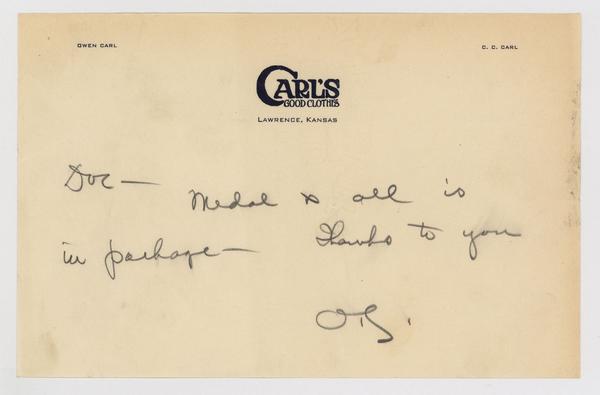 OWEN CARL
C. C. CARL
CARL'S
GOOD CLOTHES
LAWRENCE, KANSAS
Doc— Medal & all is
in package— Thanks to you